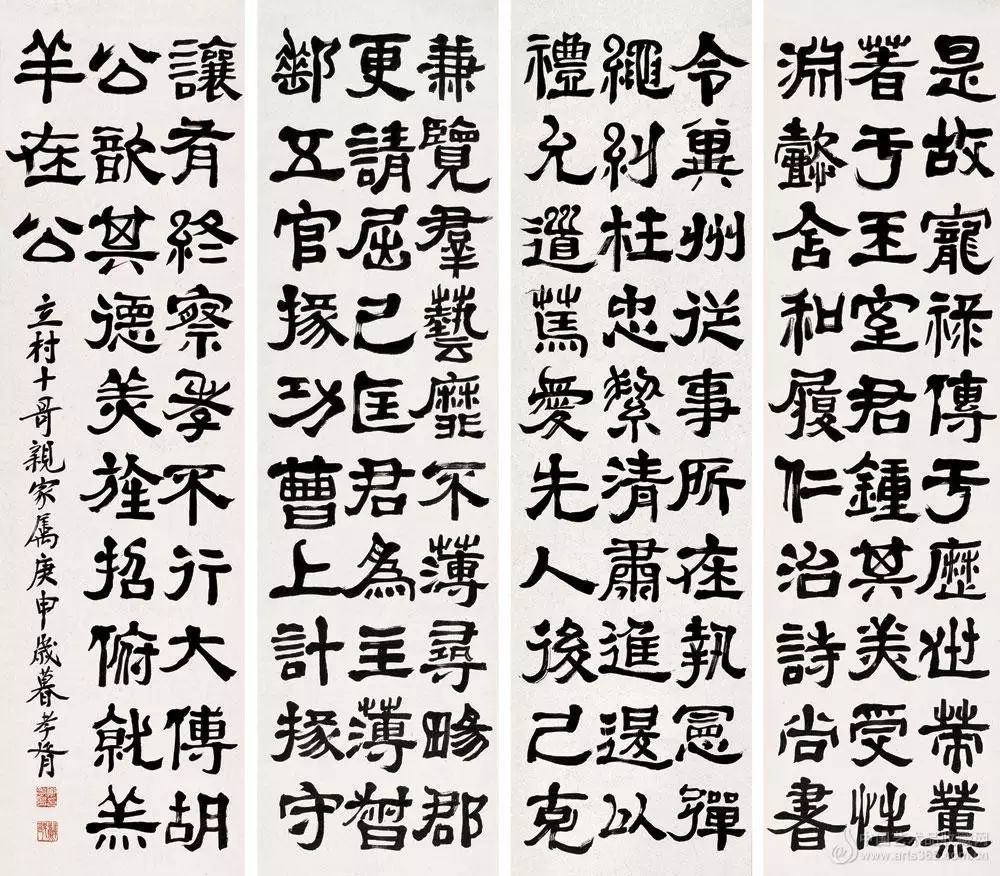 是故寵祿傳于歷世策薰
著于王室君鍾其美受性
淵懿含和履仁治詩尚書
令冀州從事所在執憲彈
繩糾枉忠絜清肅進退以
禮允道篤愛先人後己克
兼覽羣藝靡不薄尋畼郡
更請屈己匡君為主薄督
郵五官掾功曹上計掾守
讓有終察孝不行大傅胡
公歆其德美旌招俯就羔
羊在公
立村十哥親家属庚申歲暮孝胥